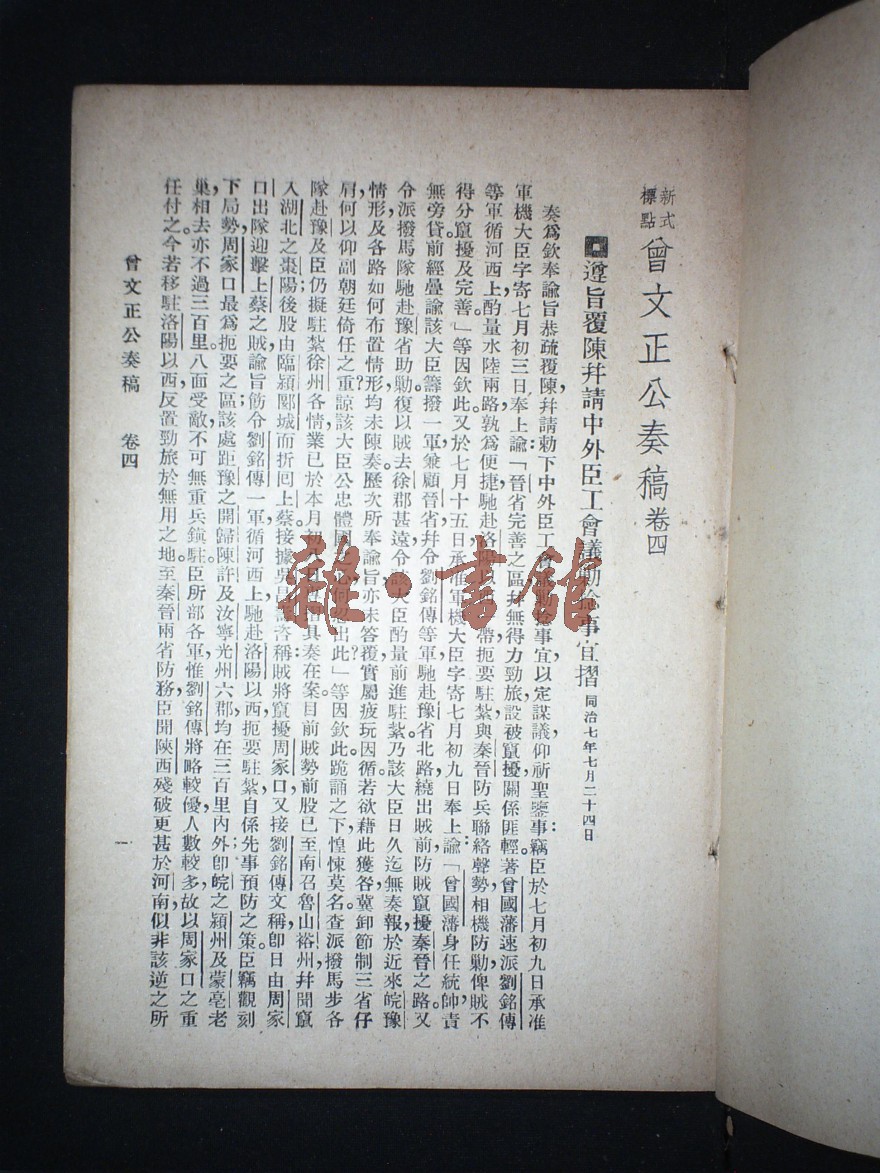 新式標點 曾文正公奏稿 卷四
遵旨覆陳幷請中外臣工會議勦捻事宜摺 同治七年七月二十四日
奏爲欽奉諭旨恭疏覆陳幷請勅下中外臣工會議勦捻事宜以定謀議仰祈聖鑒事竊臣於七月初九日承准
軍機大臣字寄七月初三日奉上諭「晉省完善之區幷無得力勁旅設被竄擾關係匪輕著曾國藩速派劉銘傳
等軍循河西上酌量水陸兩路孰爲便捷馳赴洛陽以西一帶扼要駐紮與秦晉防兵聯絡聲勢相機防勦俾賊不
得分竄擾及完善」等因欽此又於七月十五日承准軍機大臣字寄七月初九日奉上諭「曾國藩身任統帥責
無旁貸前經疊諭該大臣籌撥一軍兼顧晉省幷令劉銘傳等軍馳赴豫省北路繞出賊前防賊竄擾秦晉之路。又
令派撥馬隊馳赴豫省助勦復以賊去徐郡甚遠令該大臣酌量前進駐紮。乃該大臣日久迄無奏報於近來皖豫
情形及各路如何布置情形均未陳奏。歷次所奉諭旨亦未答覆實屬疲玩因循若欲藉此獲咎冀卸節制三省仔
肩何以仰副朝廷倚任之重？諒該大臣公忠體國之心何忍出此」等因欽此跪誦之下惶悚莫名查派撥馬步各
隊赴豫及臣仍擬駐紮徐州各情業已於本月初八日具奏在案目前賊勢前股已至南召魯山裕州幷聞竄
入湖北之棗陽；後股由臨潁郾城而折囘上蔡接據吳咨稱賊將竄擾周家口又接劉銘傳文稱卽日由周家
口出隊迎擊上蔡之賊諭旨飭令劉銘傳一軍循河西上馳赴洛陽以西扼要駐紮自係先事預防之策。臣竊觀刻
下局勢周家口最爲扼要之區該處距豫之開歸陳許及汝寧光州六郡均在三百里內外卽皖之潁州及蒙亳老
巢相去亦不過三百里八面受敵不可無重兵鎮駐臣所部各軍惟劉銘傳將略較優人數較多故以周家口之重
任付之今若移駐洛陽以西反置勁旅於無用之地。至秦晉兩省防務臣聞陝西殘破更甚於河南似非該逆之所
曾文正公奏稿 卷四
一
雜·書館